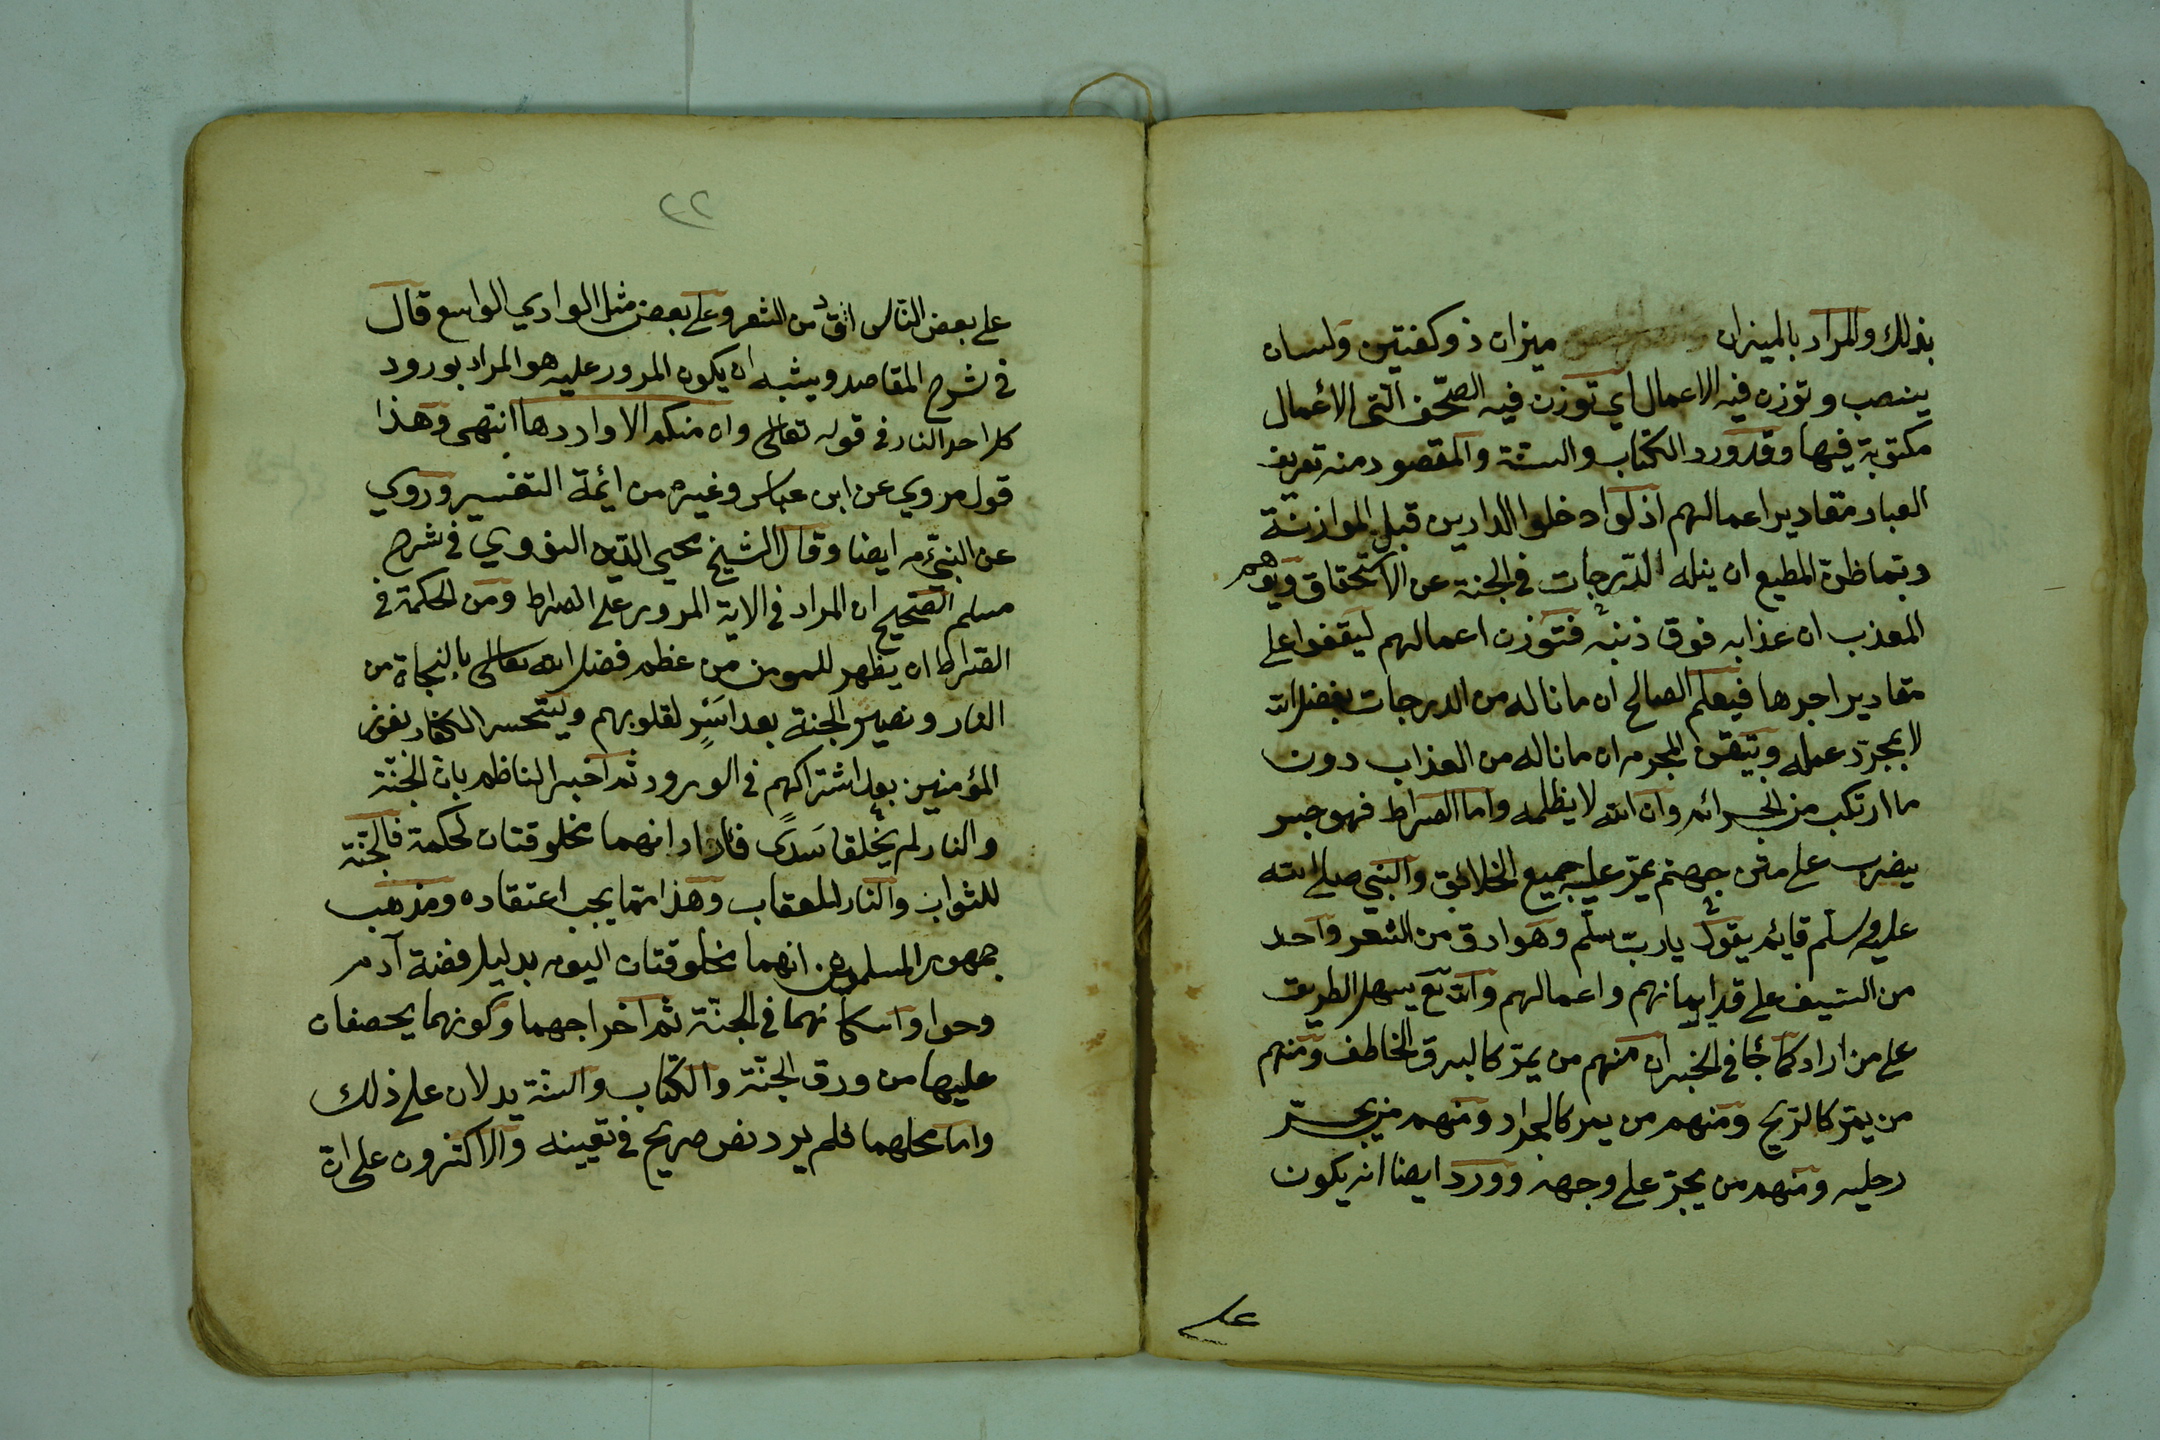 بذلك والمراد بالميزان ميزان ذو كفتين ولسان
ينصب وتوزن فيه الاعمال اي توزن فيه الصحف التى الأعمال
مكتوبة فيها وقد ورد الكتاب والسنة والمقصود منه تعريف
العباد مقادير اعمالهم اذ لوا دخلوا الدارين قبل الموازنة
وبما ظن المطيع ان ينله الدرجات في الجنة عن الاستحقاق ويوهم
المعذب ان عذابه فوق ذنبه فتوزن اعمالهم ليقفوا على
مقادير اجرها فيعلم الصالح ان ما ناله من الدرجات بفضل الله
لا بمجرد عمله ويتيقن المجرم ان ما ناله من العذاب دون
ما ارتكب من الجرائم وان الله لا يظلمه واما الصراط فهو جسر
يضرب على متن جهنم يمر عليه جميع الخلائق والنبي صلى الله
عليه وسلم قايم يقول يارب سلم وهو ادق من الشعر واحد
من السيف على قدر ايمانهم واعمالهم والله تع يسهل الطريق
على من اراد كما جا في الخبر ان منهم من يمر كالبرق الخاطف ومنهم
من يمر كالريح ومنهم من يمر كالجراد ومنهم من يجر
رجليه ومنهم من يجر على وجهه وورد ايضا انه يكون
على
٢٢
على بعض الناس ادق من الشعر وعلى بعض مثل الوادي الواسع قال
في شرح المقاصد ويشبه ان يكون المرور عليه هو المراد بورود
كل احد النار في قوله تعالى وان منكم الا واردها انتهى وهذا
قول مروي عن ابن عباس وغيره من ائمة التفسير وروي
عن النبي ءم ايضا وقال الشيخ محيى الدين النووي في شرح
مسلم الصحيح ان المراد في الاية المرور على الصراط ومن الحكمة في
الصراط ان يظهر للمومن من عظم فضل الله تعالى بالنجاة من
النار ونصير الجنة بعد اسر لقلوبهم وليتحسر الكفار بفوز
المؤمنين بعد اشتراكهم في الورود ثم اخبر الناظم بان الجنة
والنار لم يخلقا سدى فاراد انهما مخلوقتان لحكمة فالجنة
للثواب والنار للعقاب وهذا مما يجب اعتقاده ومذهب
جمهور المسلمين انهما مخلوقتان اليوم بدليل قصة آدم
وحوا واسكانهما في الجنة ثم اخراجهما وكونهما يخصفان
عليها من ورق الجنة والكتاب والسنة يدلان على ذلك
واما محلهما فلم يرد نص صريح في تعيينه والاكثرون على ان